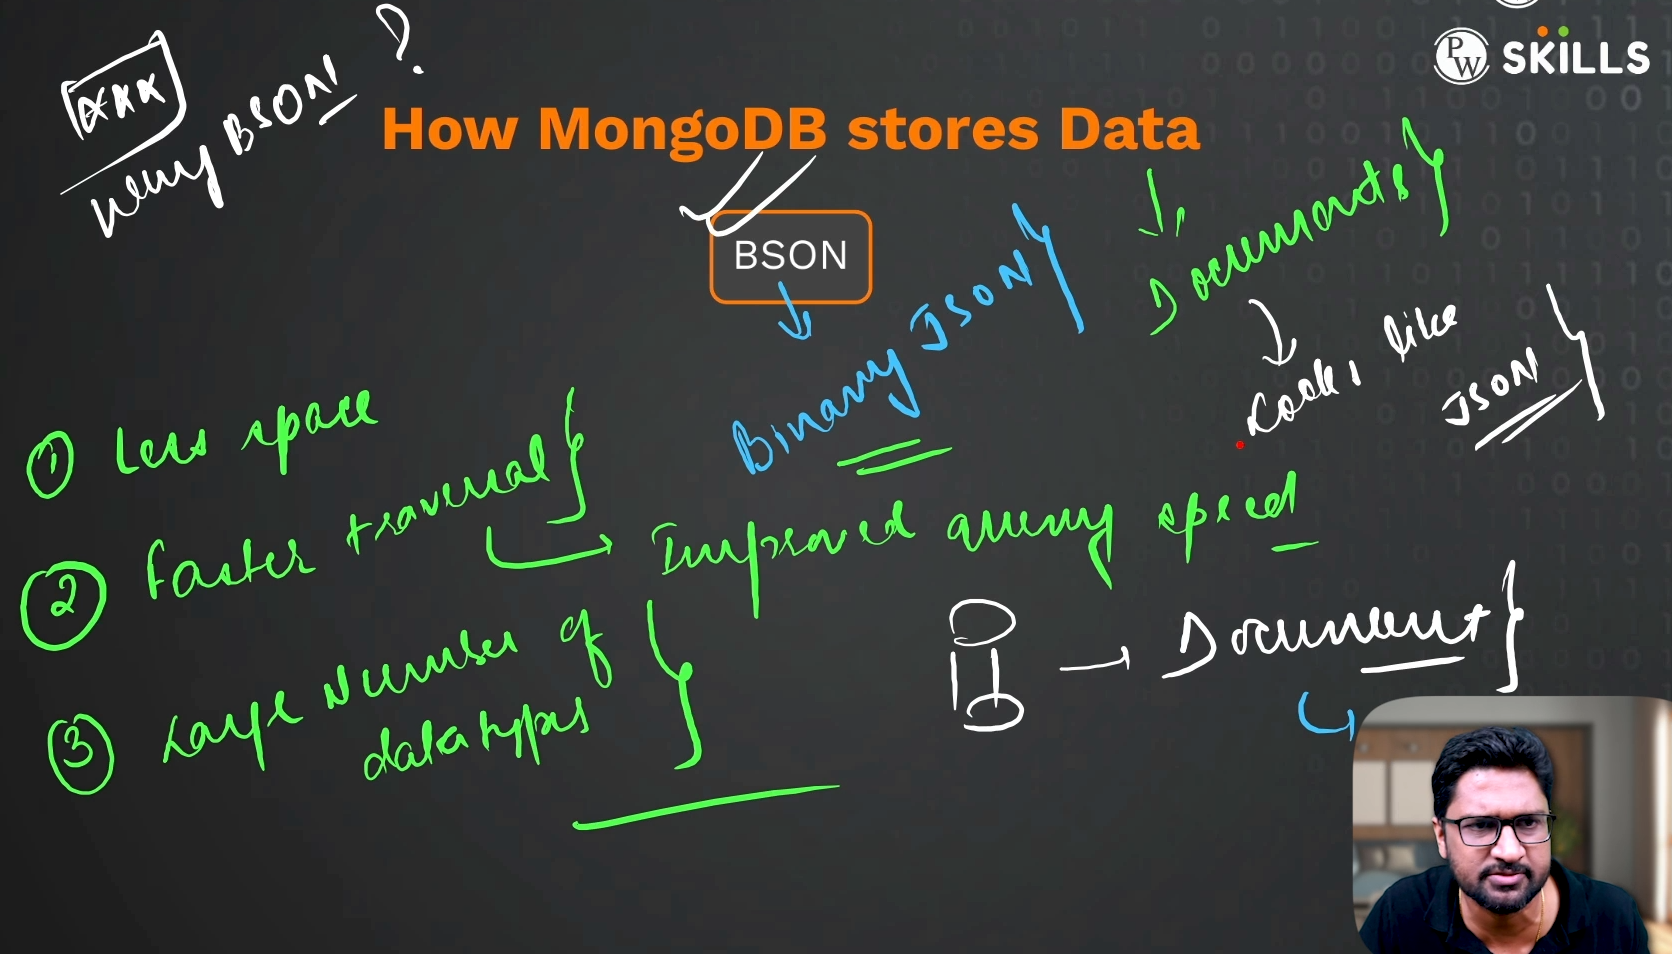 PW SKILLS
*** 
Why BSON ?
How MongoDB stores Data
BSON
Binary JSON
Documents
Looks like
JSON
① Less space
② Faster traversal
Improved query speed
③ Large Number of
data types
→ Document